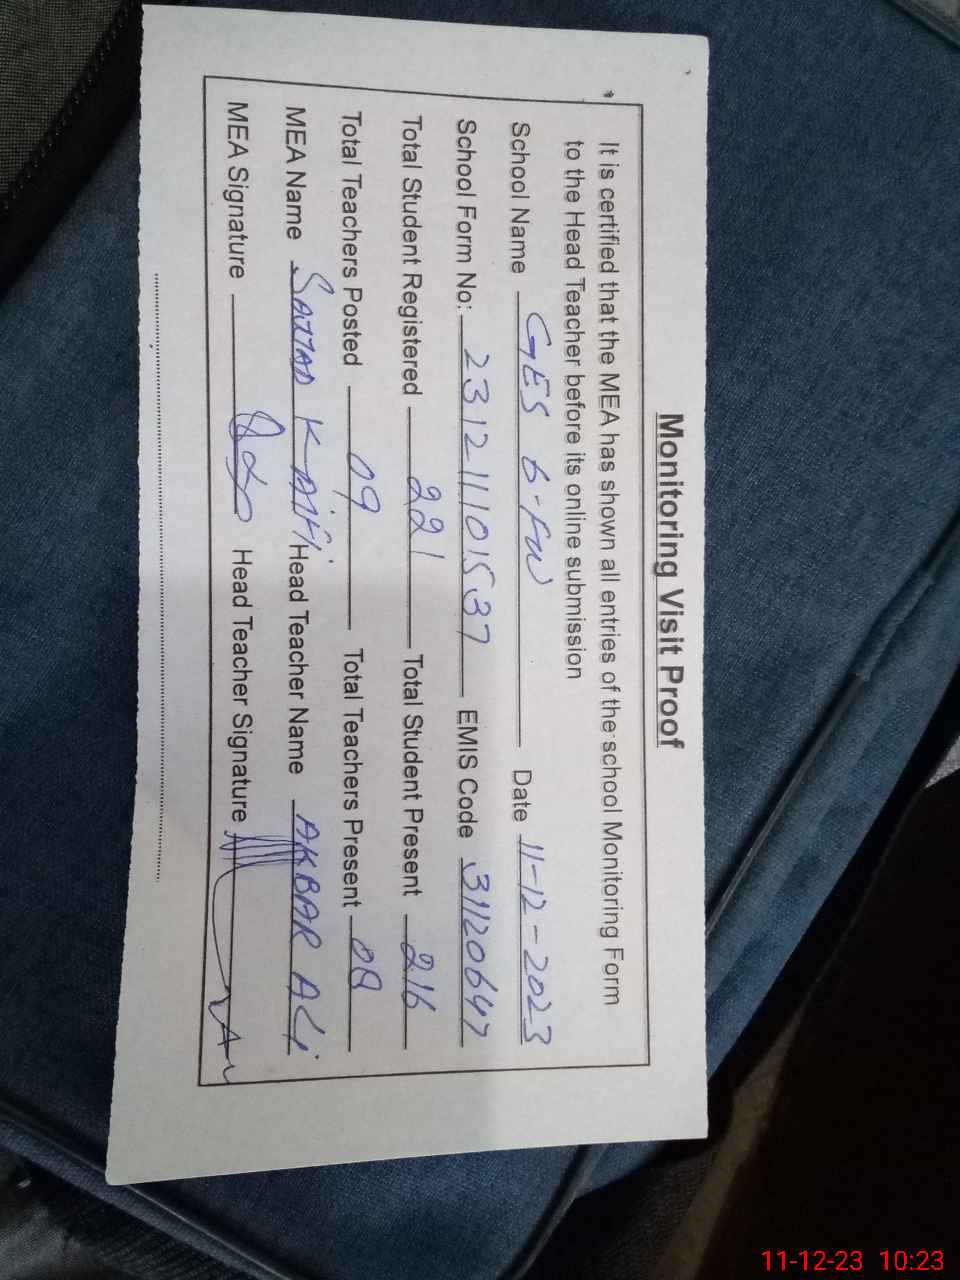 Monitoring Visit Proof
* It is certified that the MEA has shown all entries of the school Monitoring Form
to the Head Teacher before its online submission
School Name GES 6-FW Date 11-12-2023
School Form No: 231211101537 EMIS Code 31120647
Total Student Registered 221 Total Student Present 216
Total Teachers Posted 09 Total Teachers Present 08
MEA Name SAJJAD KAIFI Head Teacher Name AKBAR ALI
MEA Signature Head Teacher Signature
11-12-23 10:23